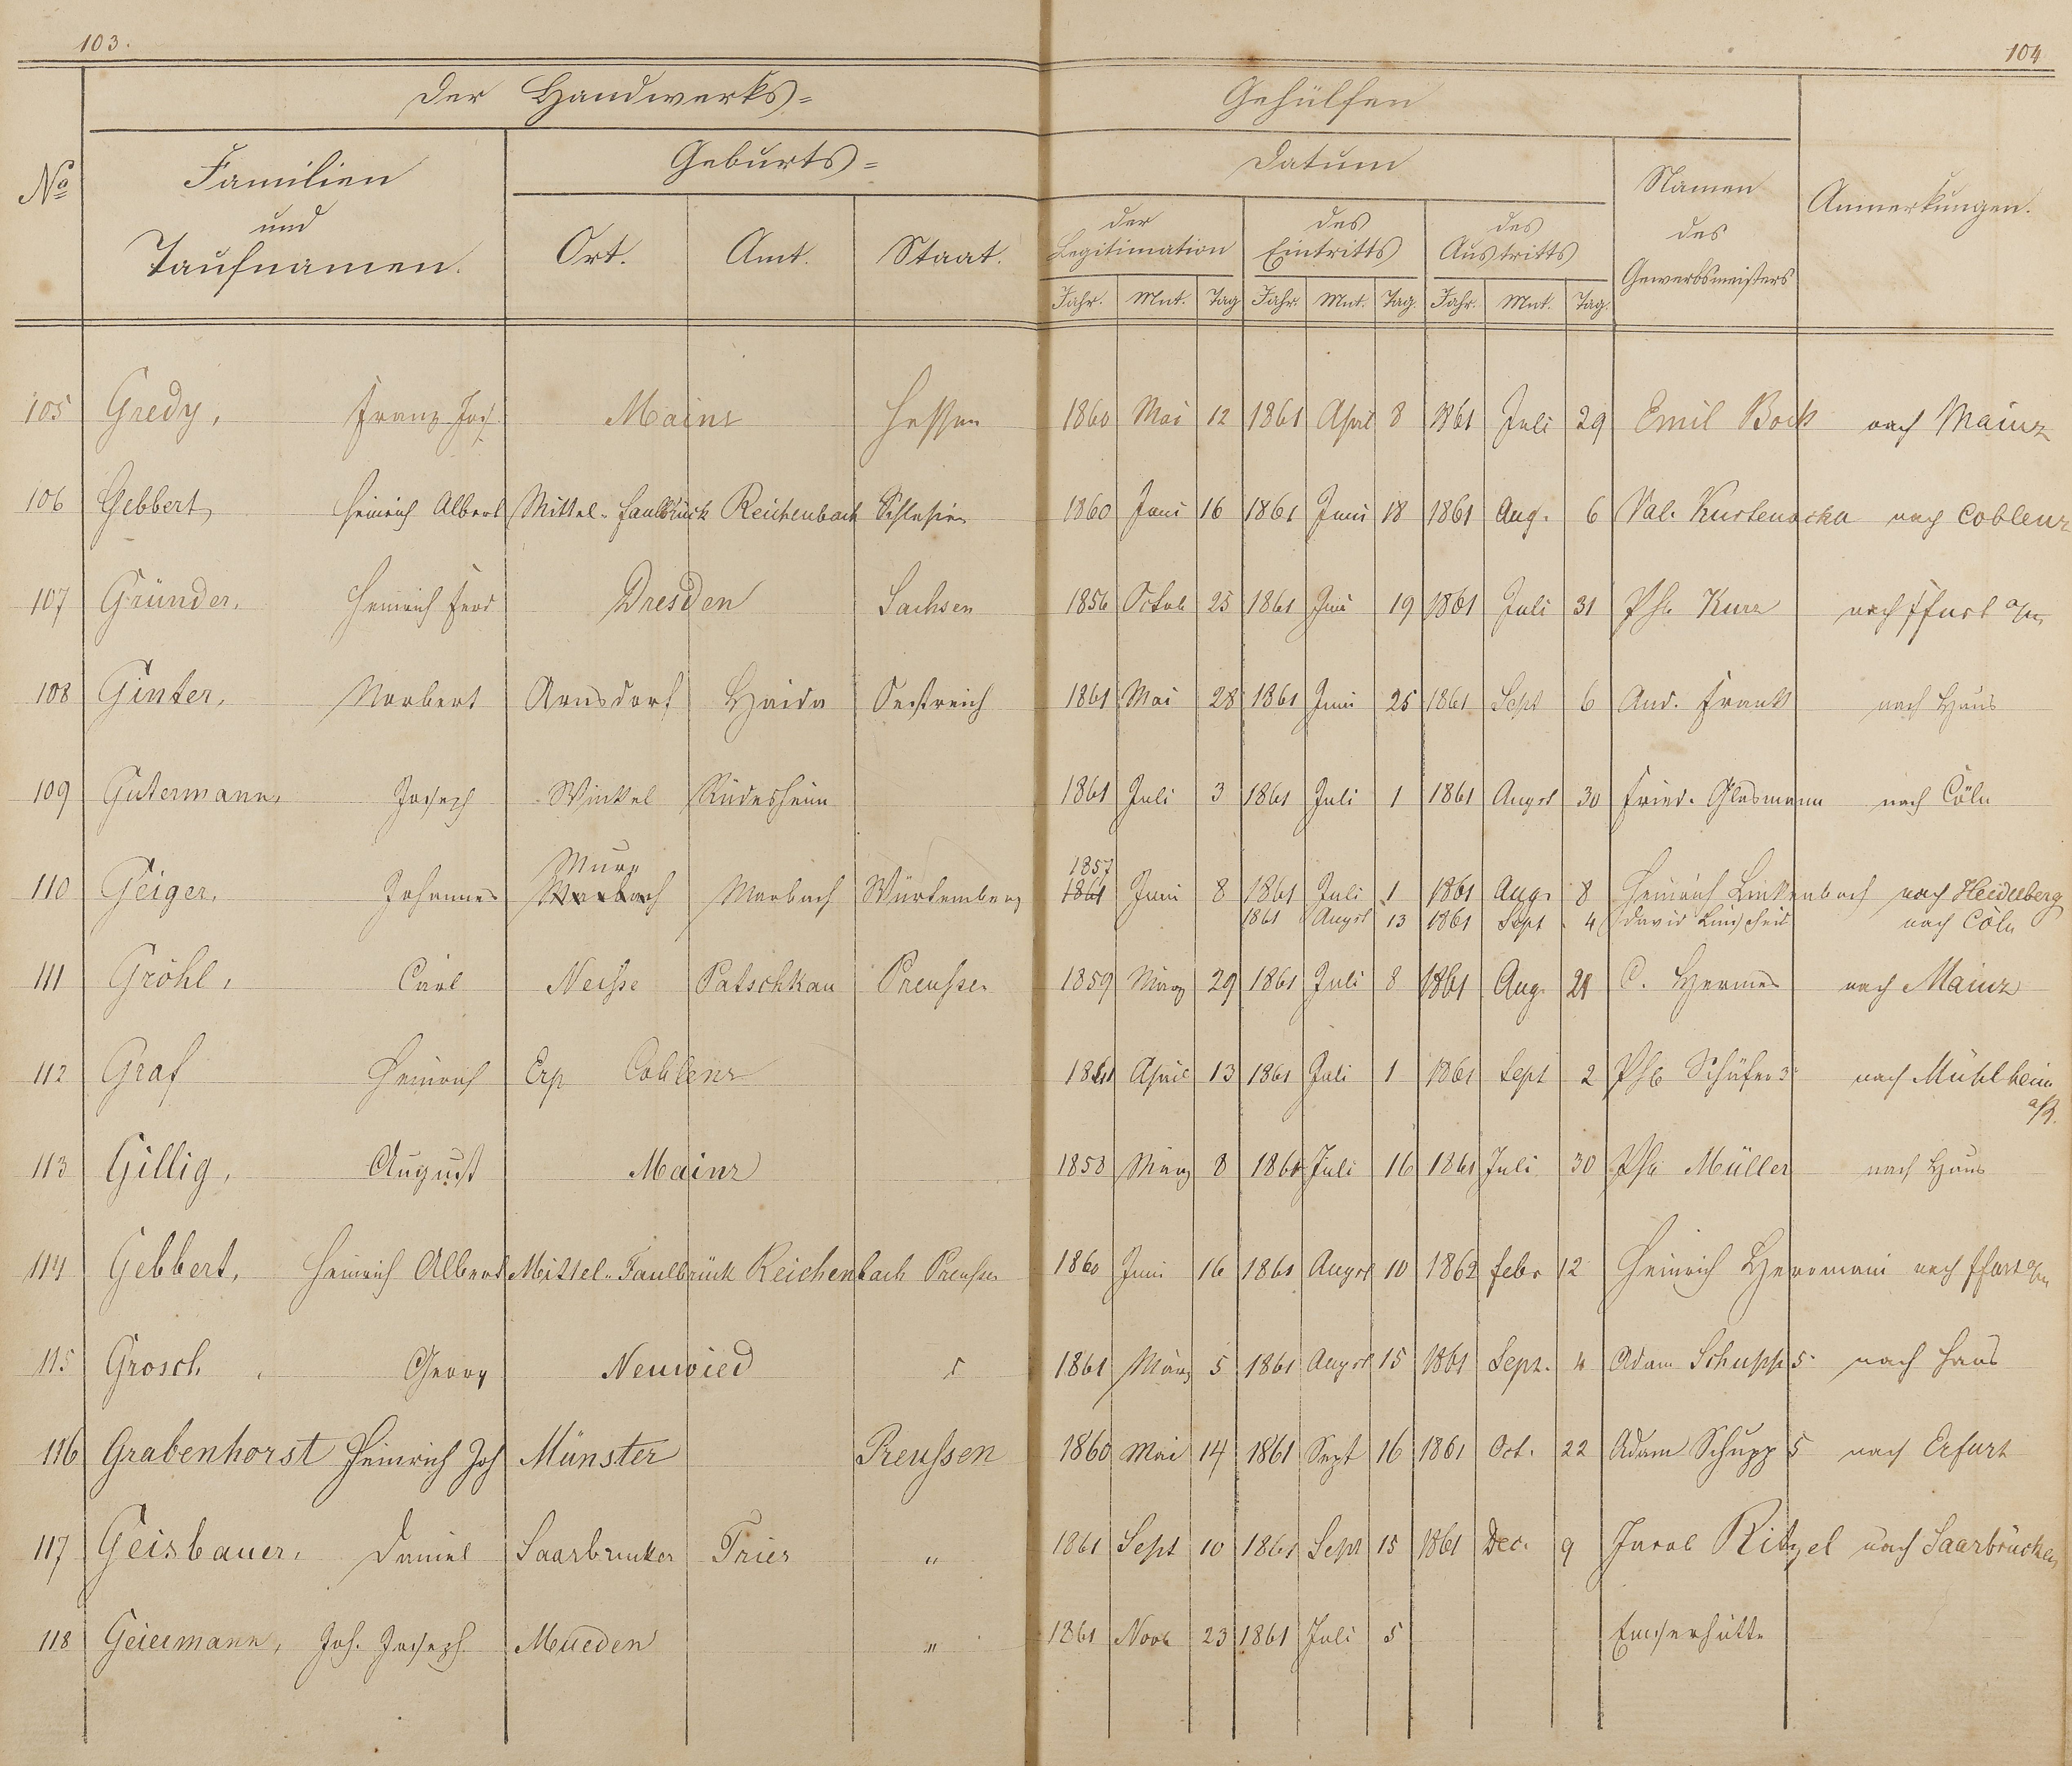 103.
104
Der Handwerks=
Gehülfen
No
Familien
und
Taufnamen.
Geburts=
Ort.
Amt.
Staat.
Datum
der
Legitimation
des
Eintritts
des
Austritts
Jahr. Mnt. Tag Jahr. Mnt. Tag. Jahr. Mnt. Tag.
Namen
des
Gewerbsmeisters
Anmerkungen.
105 Gredy, Franz Jos. Mainz Hessen 1860 Mai 12 1861 April 8 1861 Juli 29 Emil Bock nach Mainz
106 Gebbert, Heinrich Albert Mittel-Faulbrück Reichenbach Schlesien 1860 Juni 16 1861 Juni 18 1861 Aug. 6 Val. nach Coblenz
107 Gründer, Heinrich Ferd Dresden Sachsen 1856 Octob 25 1861 Juni 19 1861 Juli 31 Ph. Kurz nach Ffurt a/m
108 Ginter, Norbert Arnsdorf Haida Oestreich 1861 Mai 28 1861 Juni 25 1861 Sept 6 And. Frank nach Haus
109 Gutermann, Joseph Winkel Rüdesheim 1861 Juli 3 1861 Juli 1 1861 Augst 30 Fried. Glasmann nach Cöln
Murr
1857
110 Geiger, Johannes Marbach Marbach Würtemberg 1861 Juni 8 1861 Juli 1 1861 Aug. 8 Heinrich Linkenbach nach Heidelberg
1861 Augst 13 1861 Sept 4 David nach Cöln
111 Gröhl, Carl Neisse Patschkau Preussen 1859 März 29 1861 Juli 8 1861 Aug. 21 C. Hermes nach Mainz
112 Graf Heinrich Erp Coblenz 1861 April 13 1861 Juli 1 1861 Sept 2 Ph Schäfer 3. nach Mühlheim
a/R.
113 Gillig, August Mainz 1858 März 8 1861 Juli 16 1861 Juli 30 Ph. Müller nach Haus
114 Gebbert, Heinrich Albert Mittel-Faulbrück Reichenbach Preussen 1860 Juni 16 1861 Augst 10 1862 Febr 12 Heinrich Herrmann nach Ffurt a/m
115 Grosch, Georg Neuwied 1861 März 5 1861 Augst 15 1861 Sept. 4 Adam Schupp 5. nach Haus
116 Grabenhorst Heinrich Jos Münster Preussen 1860 Mai 14 1861 Sept 16 1861 Oct. 22 Adam Schupp 5 nach Erfurt
117 Geisbauer, Daniel Saarbrücken Trier " 1861 Sept 10 1861 Sept 15 1861 Dec. 9 Jacob Ritzel nach Saarbrücken
118 Geiermann, Joh. Joseph. Mueden " 1861 Novb 23 1861 Juli 5 Emserhütte